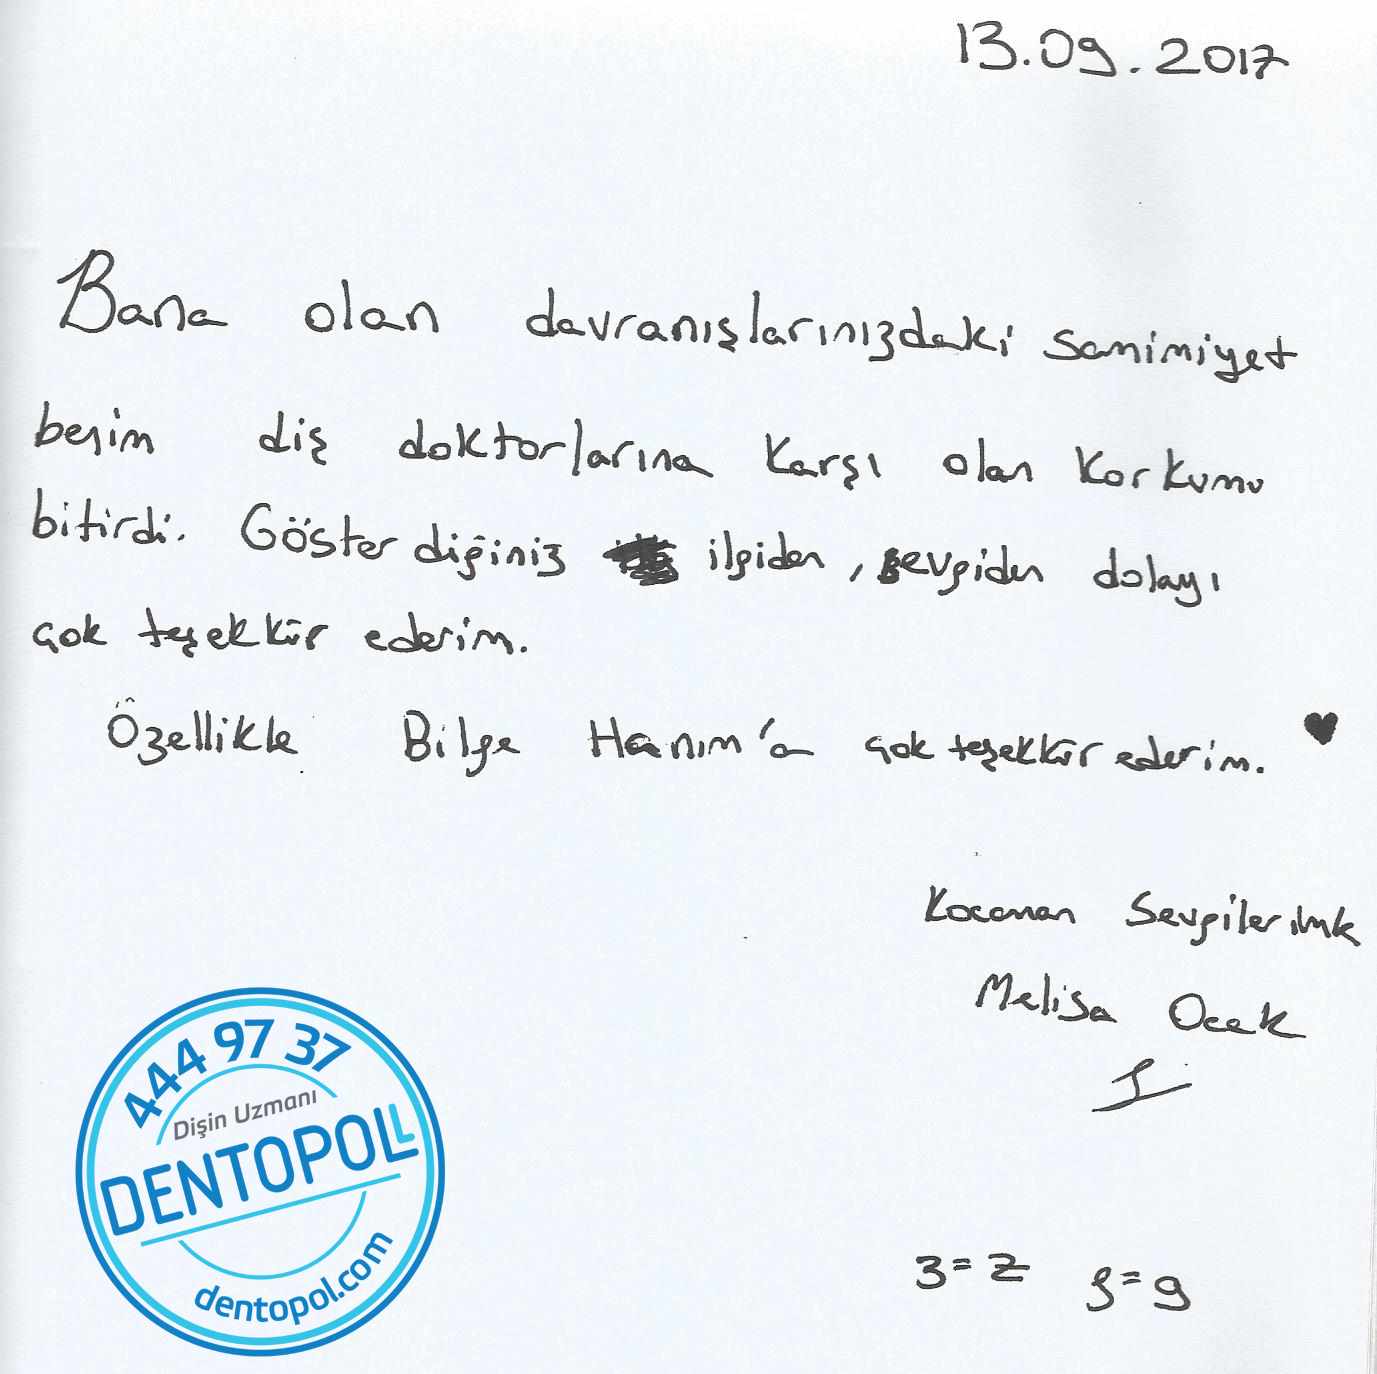 13.09.2017
Bana olan davranışlarınızdaki samimiyet
benim diş doktorlarına karşı olan korkumu
bitirdi. Gösterdiğiniz ilgiden, sevgiden dolayı
çok teşekkür ederim.
Özellikle Bilge Hanım'a çok teşekkür ederim. ♥
Kocaman Sevgilerimle
Melisa Ocak
444 97 37
Dişin Uzmanı
DENTOPOL
dentopol.com
3=Z ʒ=g